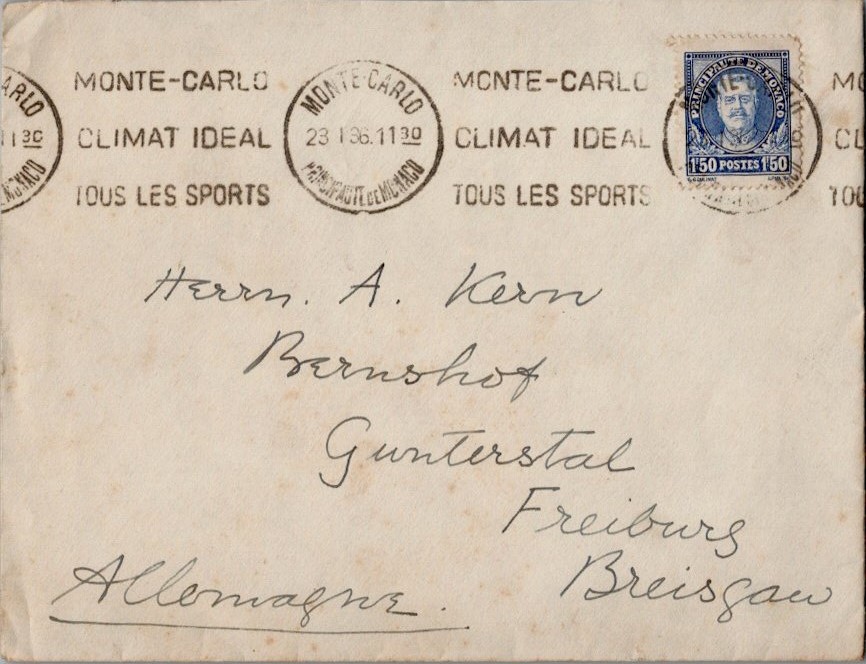 MONTE-CARLO
CLIMAT IDEAL
TOUS LES SPORTS
MONTE-CARLO
23 I 36.11 30
PRINCIPAUTE DE MONACO
MONTE-CARLO
CLIMAT IDEAL
TOUS LES SPORTS
PRINCIPAUTE DE MONACO
1F50 POSTES 1F50
Herrn. A. Kern
Bernshof
Gunterstal
Freiburg
Breisgau
Allemagne.